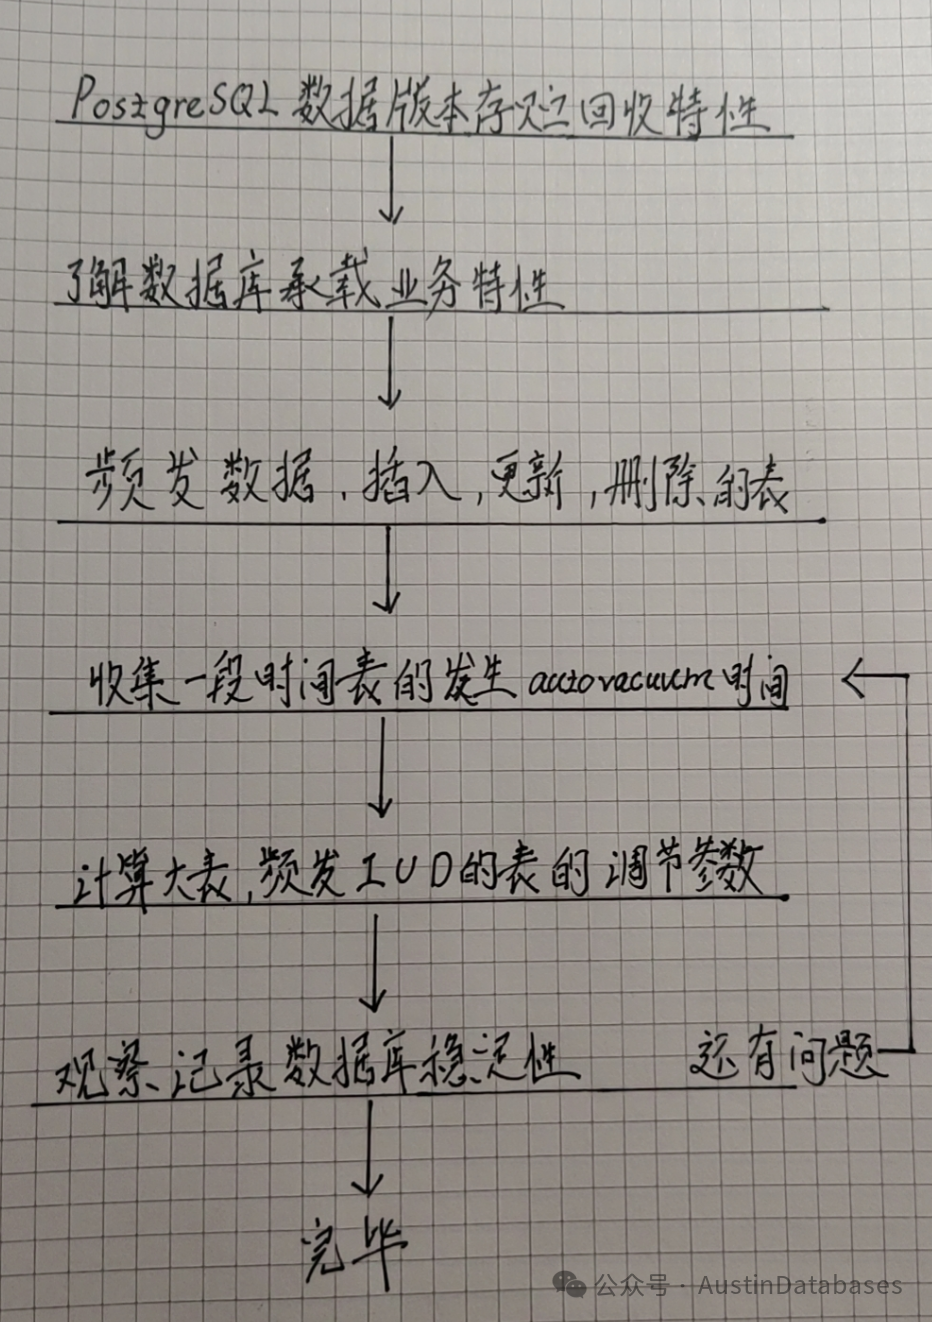 PostgreSQL 数据版本存次立回收特性
了解数据库承载业务特性
频发数据、插入,更新,删除的表
收集一段时间表的发生 autovacuum 时间
计算大表,频发IUD的表的调节参数
观察记录数据库稳定性 还有问题
完毕
公众号 · AustinDatabases